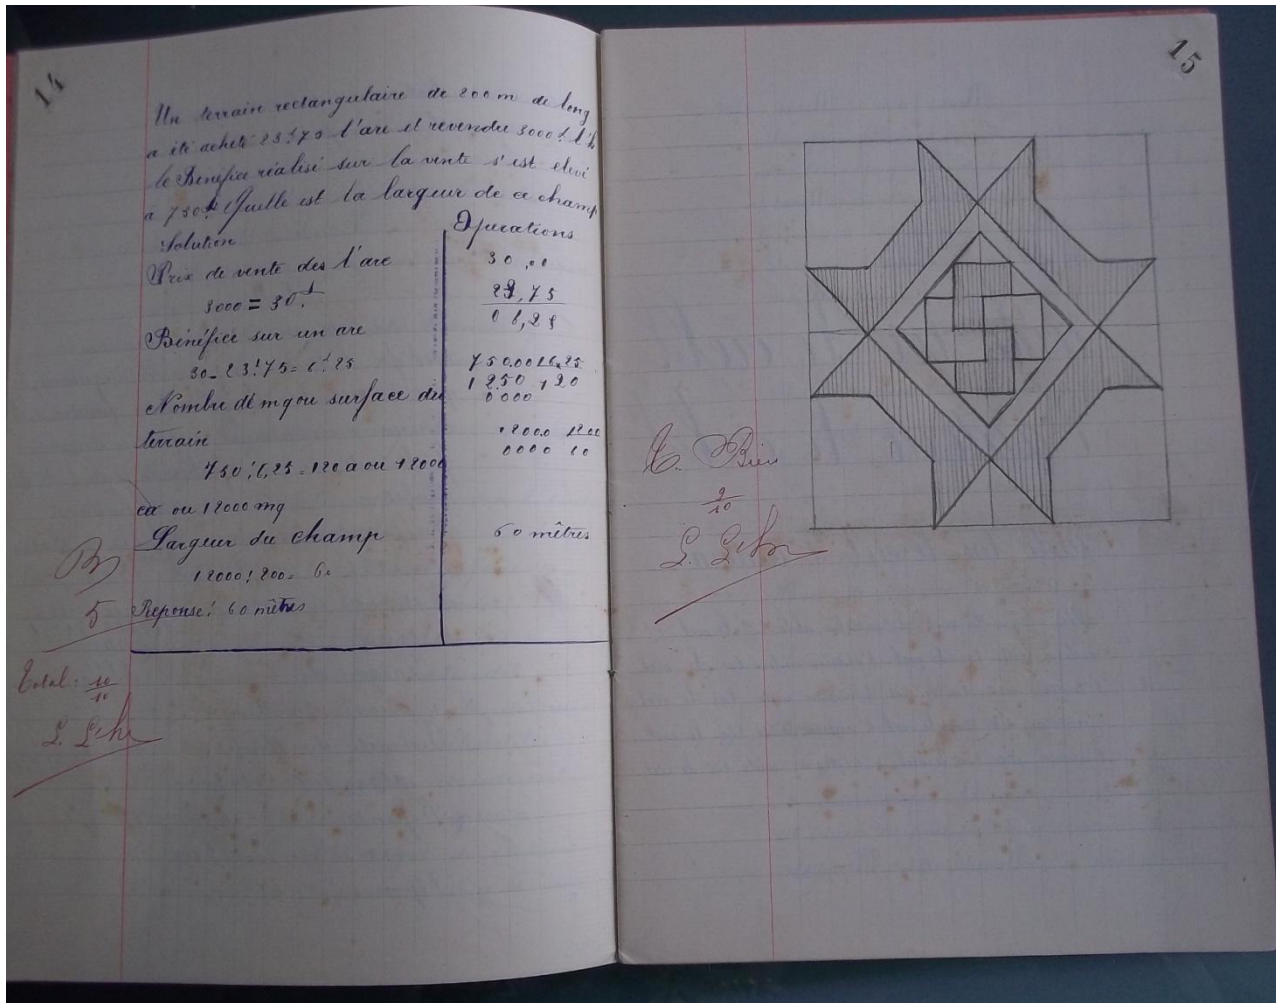 14
Un terrain rectangulaire de 200 m de long
a été acheté 23f75 l'are et revendu 3000f l'h
le Bénéfice réalisé sur la vente s'est élevé
à 750f Quelle est la largeur de ce champ
Solution
Opérations
Prix de vente des l'are
3000 = 30f
Bénéfice sur un are
30 - 23f75 = 6f25
Nombre de mq ou surface du
terrain
750 : 6,25 = 120 a ou 12000
ca ou 12000 mq
Largeur du champ
12000 : 200 = 60
Reponse : 60 mètres
30,00
23,75
06,25
750.00 6,25
1250 120
0000
12000 200
0000 60
60 mètres
B
5
Total : 10/10
15
T. Bien
9/10